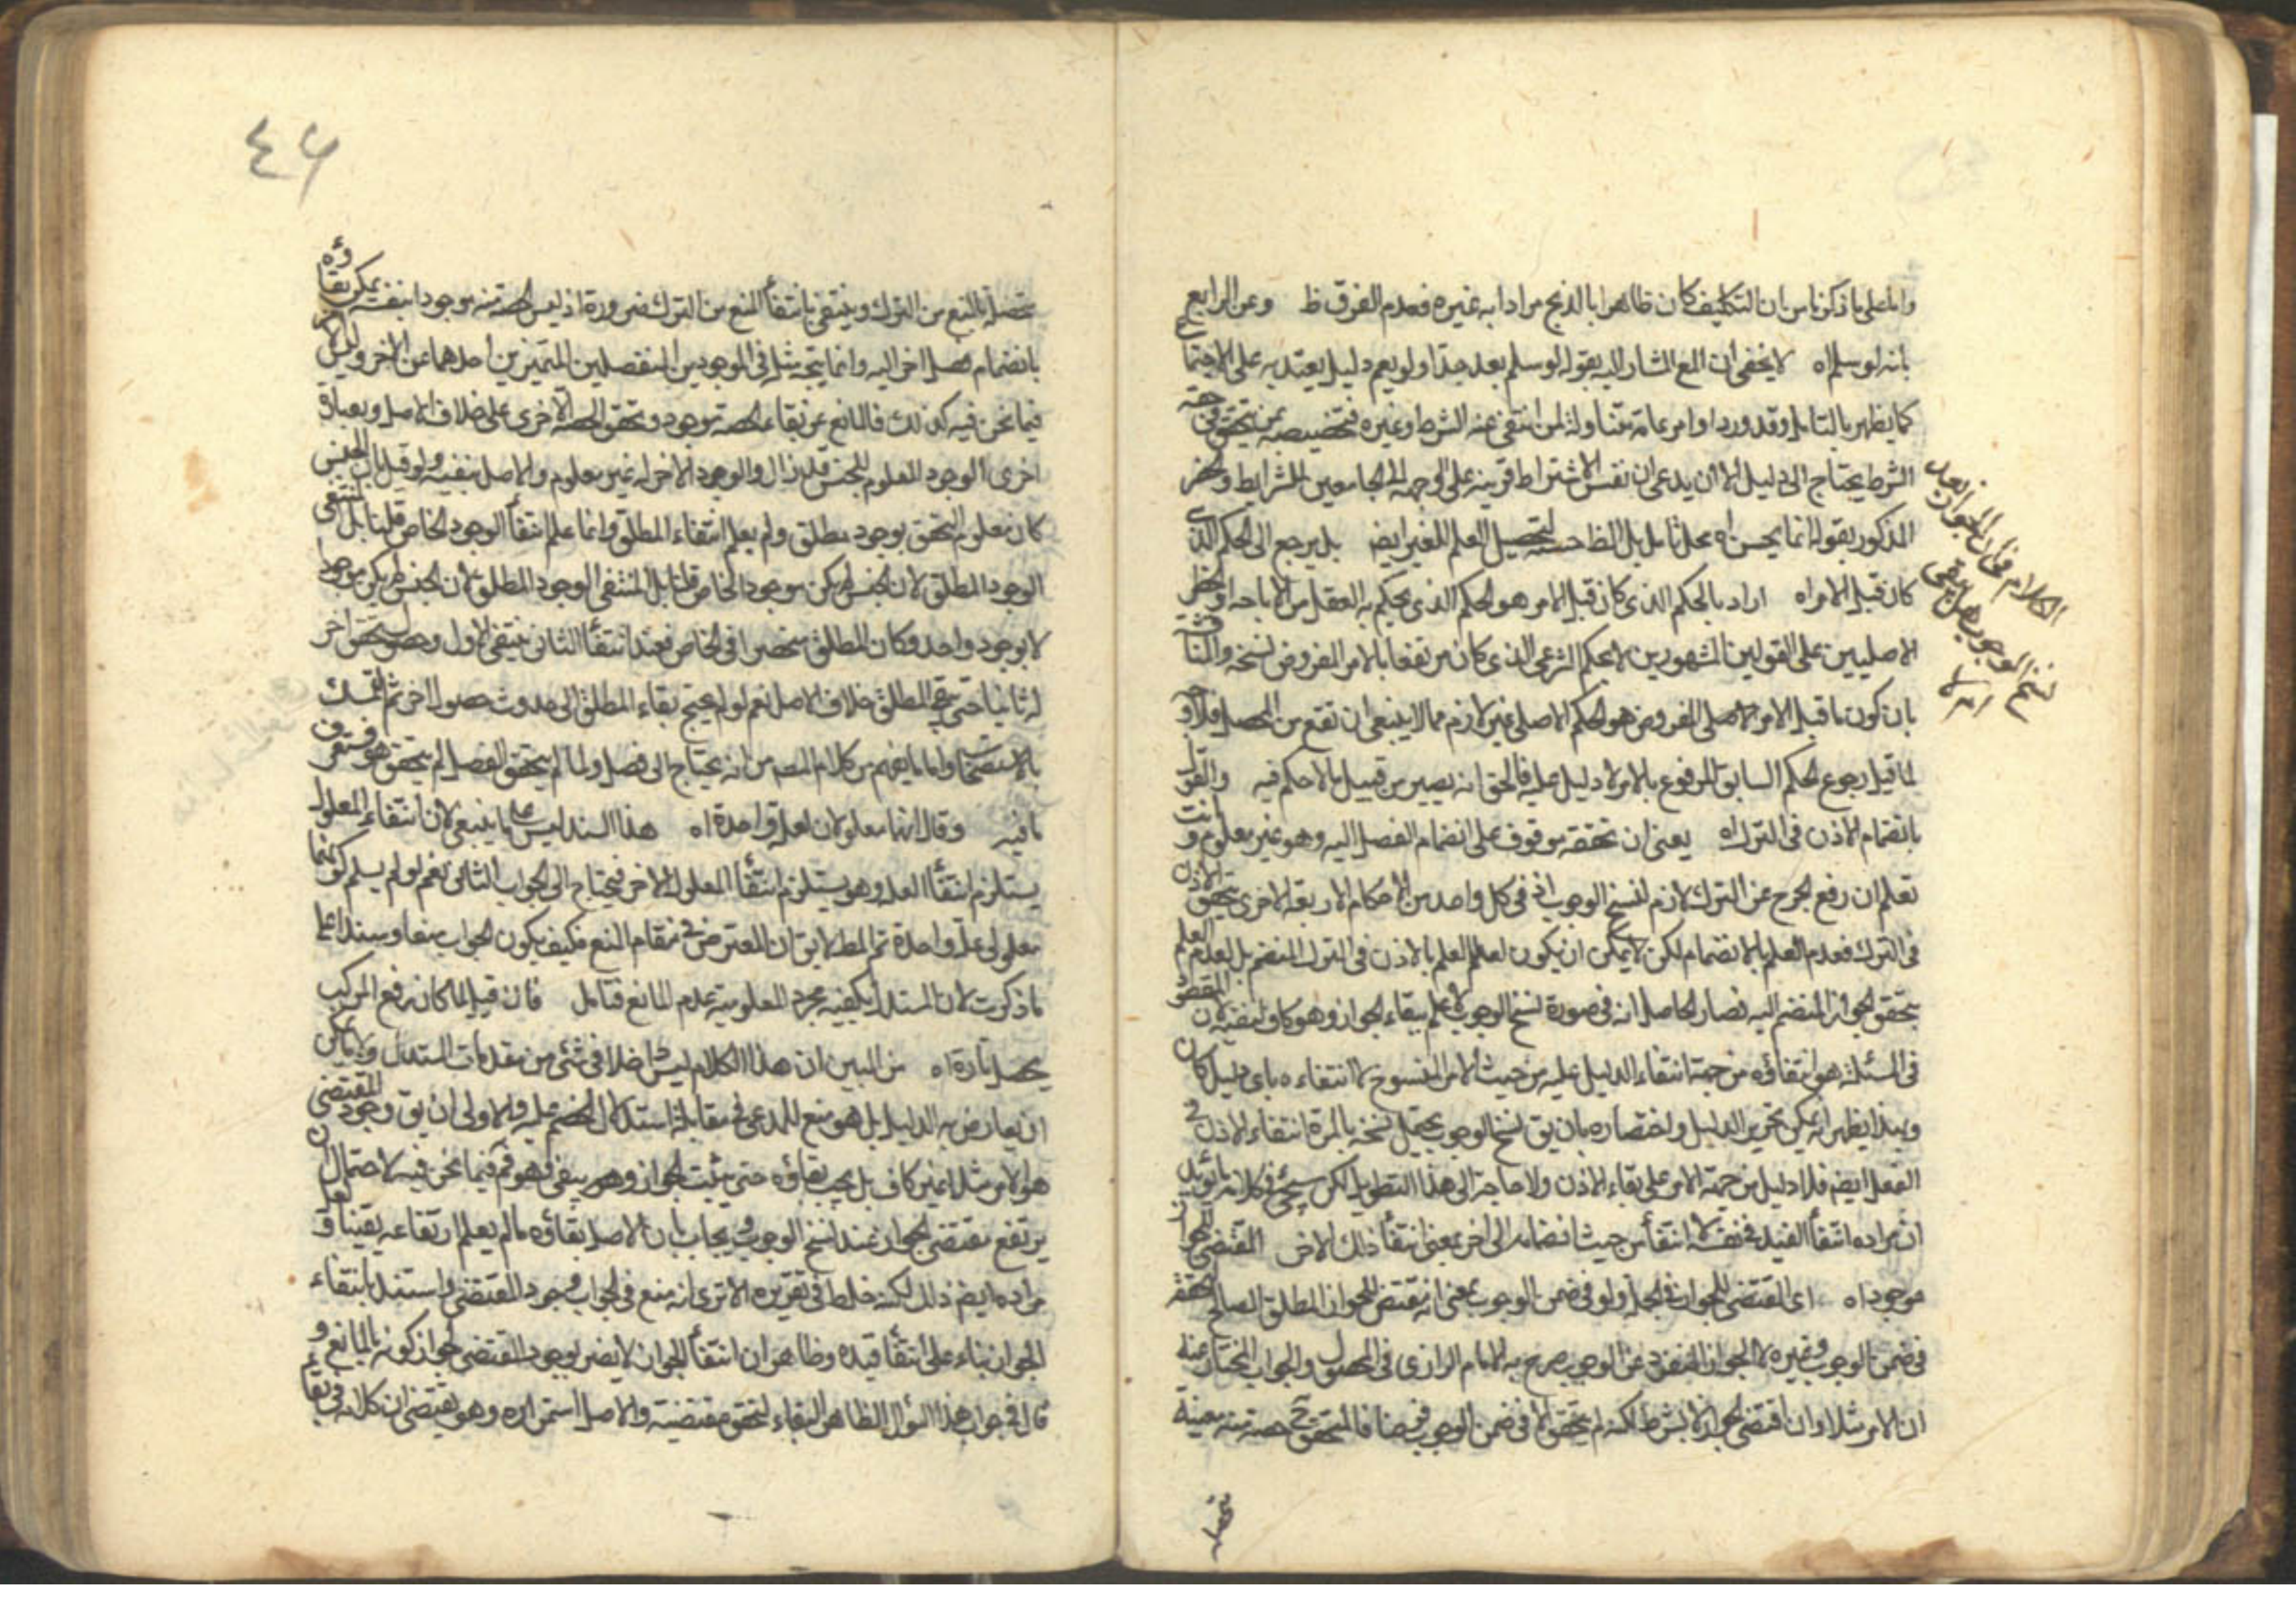 واما على ما ذكرنا من ان التكليف كان ظاهرا بالذبح مرادا به غيره فعدم الفرق ظ وعن الرابع
بانه لو سلم اه لا يخفى ان المنع المشار اليه بقوله لو سلم بعيد جدا ولو يعم دليل يعتد به على الاجتماع
كما يظهر بالتامل وقد ورد اوامر عامة متناولة لمن انتفى عنه الشرط وغيره فتخصيصه بمن يتحقق في حقه
الشرط يحتاج الى دليل الا ان يدعى ان نفس الاشتراط قرينة على توجهه الى الجامعين للشرايط
المذكور بقوله انما يحسن اه محل تامل بل الظ حسنه لتحصيل العلم للغير ايض بل يرجع الى الحكم الذى
كان قبل الامر اه اراد بالحكم الذى كان قبل الامر هو الحكم الذى يحكم به العقل من الاباحة او الحظر
الاصليين على القولين المشهورين لا الحكم الشرعى الذى كان مرتفعا بالامر المفروض نسخه
بان كون ما قبل الامر الاصلى المفروض هو الحكم الاصلى غير لازم مما لا ينبغى ان تقع من المحصل
لما قيل رجوع الحكم السابق المرفوع بالامر لا دليل عليه فالحق انه يصير من قبيل ما لا حكم فيه والقول
بانضمام الاذن فى الترك اه يعنى ان تحققه موقوف على انضمام الفصل اليه وهو غير معلوم وانت
تعلم ان رفع الحرج عن الترك لازم لنسخ الوجوب اذ فى كل واحد من الاحكام الاربعة الاخرى يتحقق الاذن
فى الترك فعدم العلم بالانضمام لكن لا يمكن ان يكون لعدم العلم بالاذن فى الترك المنضم بل لعدم العلم
بتحقق الجواز المنضم اليه فصار الحاصل انه فى صورة نسخ الوجوب لا يعلم ببقاء الجواز وهو كاف لنفيه لان المقصود
فى المسئلة هو انتفاؤه من جهة انتفاء الدليل عليه من حيث الامر المنسوخ لا انتفاءه باى دليل كان
وبهذا يظهر انه يمكن تحرير الدليل واختصاره بان يق نسخ الوجوب يحتمل نسخه بالمرة انتفاء الاذن فى
الفعل ايضا فلا دليل من جهة الامر على بقاء الاذن ولا حاجة الى هذا التطويل لكن سيجئ فى كلامه ما يؤيد
ان مراده انتفاء القيد فى نفسه لا انتفاء من حيث انضمامه الى اخر بمعنى انتفاء ذلك الاخر المقتضى للجواز
موجود اه اى المقتضى للجواز فى الجملة ولو فى ضمن الوجوب بمعنى انه مقتض للجواز المطلق الصالح للتحقق
فى ضمن الوجوب وغيره لا الجواز المنفرد عن الوجوب صرح به الامام الرازى فى المحصول والجواب المختار عنه
ان الامر مثلا وان اقتضى الجواز لا بشرط لكنه لم يتحقق الا فى ضمن الوجوب فالمتحقق ح حصة منه معينة
الكلام فى ان الجواز بعد
نسخ الوجوب هل يبقى
ام لا
٤٦
متحصلة بالمنع من الترك وينتفى بانتفاء المنع من الترك ضرورة اذ ليس الحصة منه موجودا بنفسه يمكن بقاؤه
بانضمام فصل اخر اليه وانما يتجه مثله فى الموجودين المنفصلين المتميزين احدهما عن الاخر وليس
فيما نحن فيه كذلك فالمانع عن بقاء الحصة موجود وتحقق الحصة الاخرى على خلاف الاصل وبعبارة
اخرى الوجود المعلوم للجنس قد زال والوجود الاخر له غير معلوم والاصل ينفيه ولو قيل بان الجنس
كان معلوم التحقق بوجود مطلق ولم يعلم انتفاء المطلق وانما علم انتفاء الوجود الخاص قلنا بل انتفى
الوجود المطلق لان الجنس لم يكن موجودا الخاص قلنا بل المنتفى الوجود المطلق لان الجنس لم يكن موجودا
لا بوجود واحد وكان المطلق منحصرا فى الخاص فعند انتفاء الثانى ينتفى الاول وحصول تحقق اخر
له ثانيا حتى يبقى المطلق خلاف الاصل نعم لو لم يحتج بقاء المطلق الى حدوث حصول اخر ثم التمسك
بالاستصحاب واما ما يفهم من كلام المص من انه يحتاج الى فصل ولما لم يتحقق الفصل لم يتحقق هو فستعرف
ما فيه وقال انهما معلولان لعلة واحدة اه هذا السند ليس على ما ينبغى لان انتفاء المعلول
يستلزم انتفاء العلة وهو يستلزم انتفاء المعلول الاخر فيحتاج الى الجواب الثانى نعم لو لم يسلم كونهما
معلولى علة واحدة تم المط لا يق ان المعترض فى مقام المنع فكيف يكون الجواب منعا وسندا على
ما ذكرت لان المستدل لا يكفيه مجرد المعلومية عدم المانع فتامل فان قيل لما كان رفع المركب
يحصل تارة اه من البين ان هذا الكلام ليس داخلا فى شئ من مقدمات المستدل ولا يمكن
ان يعارض به الدليل بل هو منع للمدعى فى مقابلة استدلال الخصم عليه والاولى ان يق وجود المقتضى
هو الامر مثلا غير كاف بل يجب بقاؤه حتى يثبت الجواز وهو ينفى فهو فيما نحن فيه لاحتمال ان
يرتفع مقتضى الجواز عند نسخ الوجوب ويجاب بان الاصل بقاؤه ما لم يعلم ارتفاعه يقينا ولعل
مراده ايض ذلك لكنه خلط فى تقريره الا ترى انه منع فى الجواب وجود المقتضى واستند بانتفاء
الجواز بناء على انتفاء قيده وظاهر ان انتفاء الجواز لا يضر بوجود المقتضى لجواز كونه بالمانع و
قال فى جواب هذا السؤال الظاهر البقاء لتحقق مقتضيه والاصل استمراره وهو يقتضى ان كلامه فى بقاء